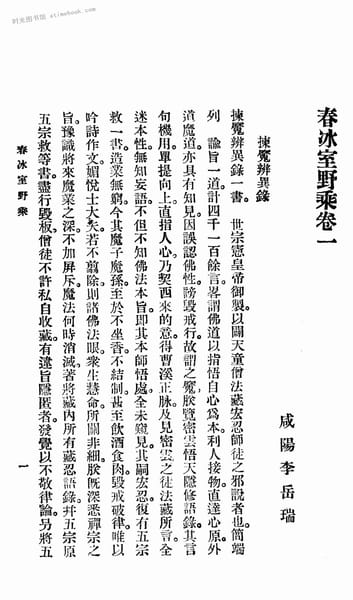 时光图书馆 stimebook.com
春冰室野乘卷一
咸陽李岳瑞
揀魔辨異錄
揀魔辨異錄一書。世宗憲皇帝御製以闢天童僧法藏宏忍師徒之邪說者也。簡端
列 諭旨一道計四千一百餘言。畧謂佛道以指悟自心為本。利人接物直達心原。外
道魔道亦具有知見。因誤認佛性。謗毀戒行。故謂之魔。朕覽密雲悟天隱修語錄。其言
句機用。單提向上。直指人心。乃契西來的意。得曹溪正脉。及見密雲之徒法藏所言。全
迷本性。無知妄語。不但不知佛法本旨。即其本師悟處。全未窺見。其嗣宏忍。復有五宗
救一書。造業無窮。今其魔子魔孫。至於不坐香不結制。甚至飲酒食肉。毀戒破律。唯以
吟詩作文。媚悅士大夫。若不翦除。則諸佛法眼。衆生慧命。所關非細。朕既深悉禪宗之
旨。豫識將來魔業之深。不加屏斥。魔法何時消滅。著將藏內所有藏忍語錄。幷五宗原
五宗救等書。盡行毀板。僧徒不許私自收藏。有違旨隱匿者。發覺以不敬律論。另將五
春冰室野乘
一